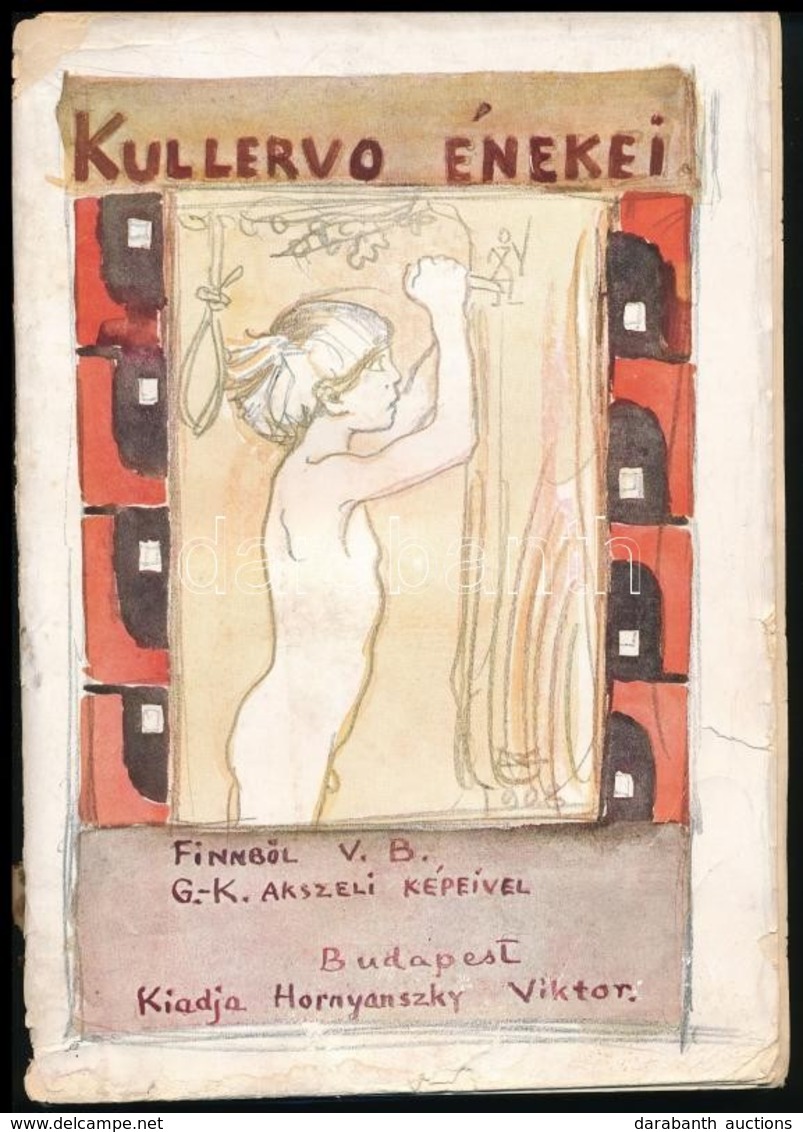 KULLERVO ÉNEKEI.
darabanth
1908
FINNBŐL V. B.
G.-K. AKSZELI KÉPEIVEL
Budapest
Kiadja Hornyanszky Viktor.
delcampe.net
darabanth auctions